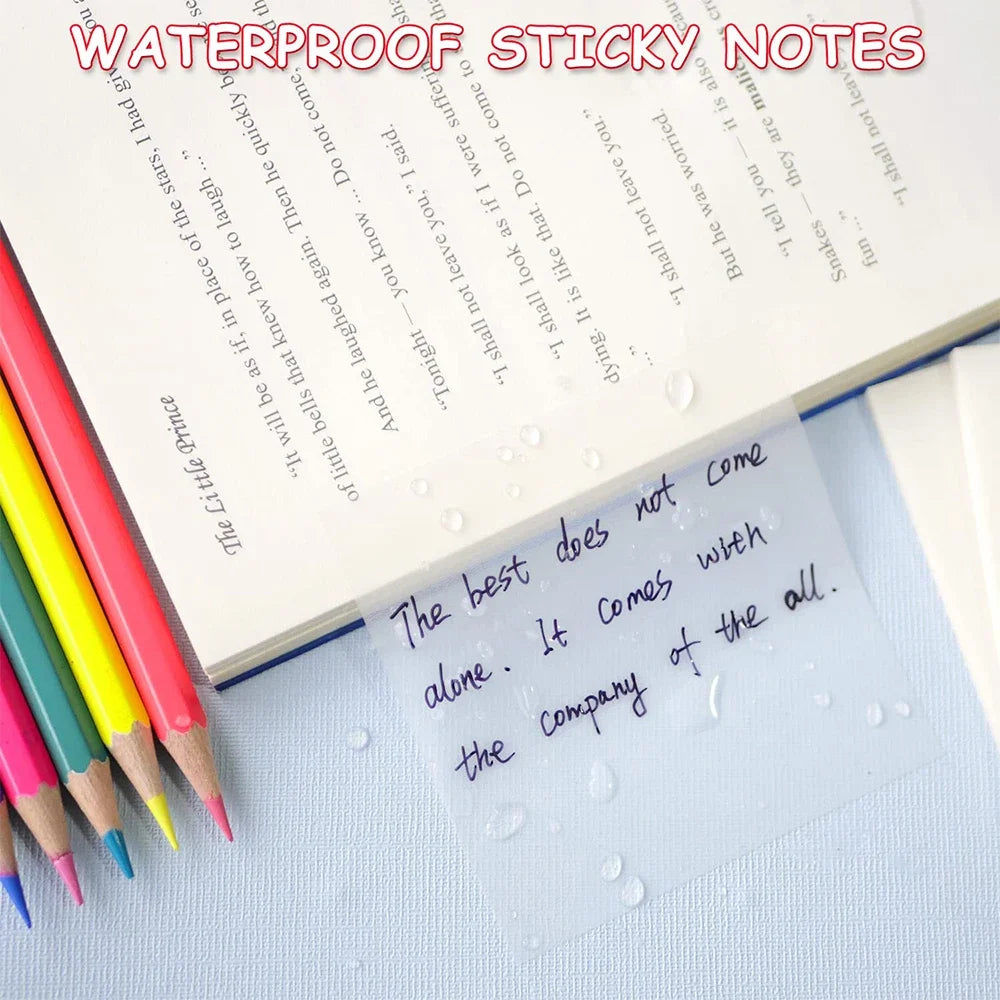 WATERPROOF STICKY NOTES
The Little Prince
"It will be as if, in place of the stars, I had given you a
of little bells that knew how to laugh ..."
And he laughed again. Then he quickly be
"Tonight — you know ... Do not come,
"I shall not leave you," I said.
"I shall look as if I were suffering
dying. It is like that. Do not come to
..."
"I shall not leave you."
But he was worried.
"I tell you — it is also
Snakes — they are mali
fun ..."
"I shall not leave
The best does not come
alone. It comes with
the company of the all.